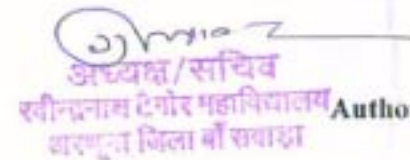 अध्यक्ष/सचिव
रवीन्द्रनाथ टैगोर महाविद्यालय Autho
जिला बाँसवाड़ा